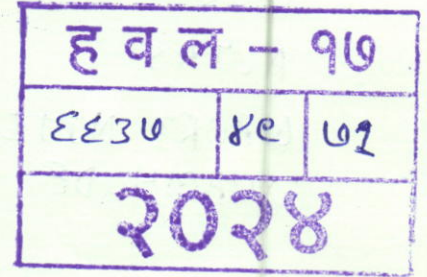 हवल - १७
६६३७ ४९ ७१
२०२४